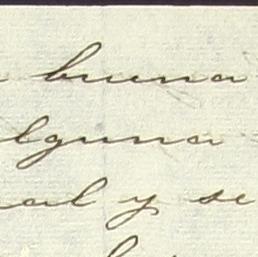 buena
lguna
al y se